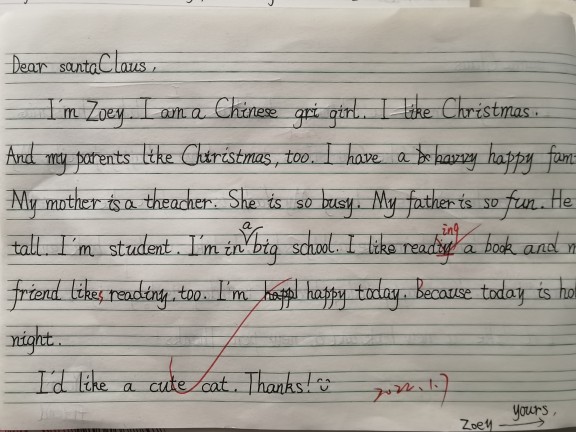 Dear santaClaus,
I'm Zoey. I am a Chinese gri girl. I like Christmas.
And my parents like Chiristmas, too. I have a happy fam
My mother is a theacher. She is so busy. My father is so fun. He
tall. I'm student. I'm in a big school. I like reading a book and m
friend likes reading, too. I'm happl happy today. Because today is hol
night.
I'd like a cute cat. Thanks!
2022.1.7
yours,
Zoey